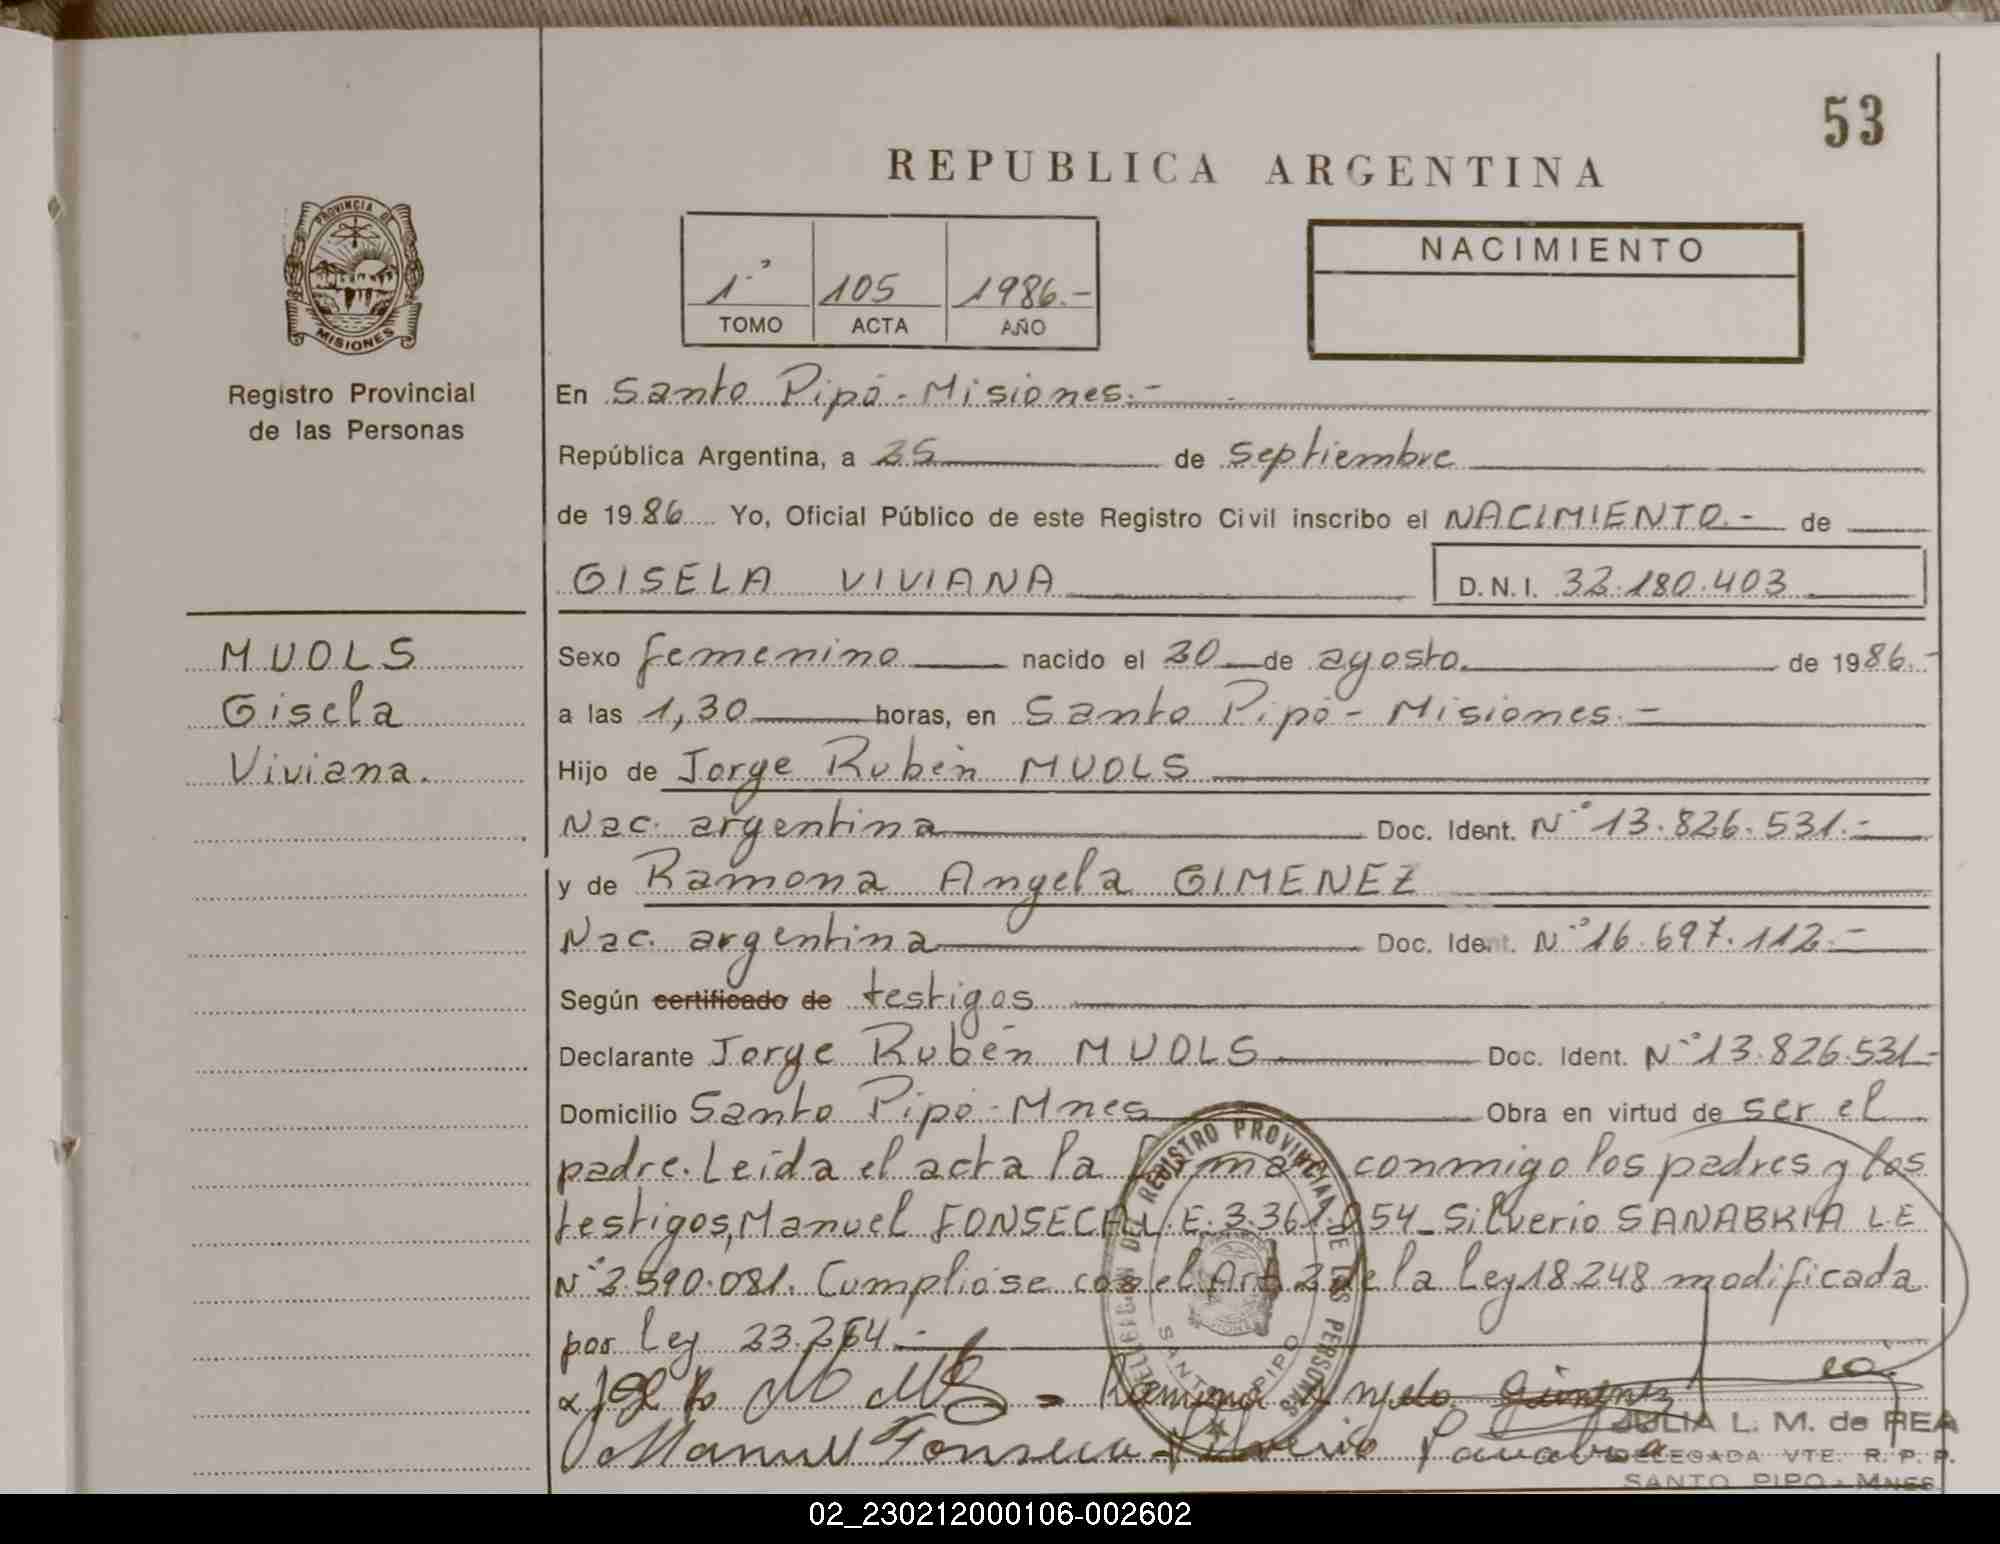 53
REPUBLICA ARGENTINA
PROVINCIA DE
MISIONES
Registro Provincial
de las Personas
1º 105 1986.-
TOMO ACTA AÑO
NACIMIENTO
En Santo Pipó - Misiones.-
República Argentina, a 25 de septiembre
de 1986 Yo, Oficial Público de este Registro Civil inscribo el NACIMIENTO.- de
GISELA VIVIANA D.N.I. 32.180.403
MUOLS
Gisela
Viviana.
Sexo femenino nacido el 30 de agosto de 1986.-
a las 1,30 horas, en Santo Pipó - Misiones.-
Hijo de Jorge Rubén MUOLS
Nac. argentina Doc. Ident. Nº 13.826.531.-
y de Ramona Angela GIMENEZ
Nac. argentina Doc. Ident. Nº 16.697.112.-
Según certificado de testigos
Declarante Jorge Rubén MUOLS Doc. Ident. Nº 13.826.531-
Domicilio Santo Pipó - Mnes Obra en virtud de ser el
padre. Leída el acta la firman conmigo los padres y los
testigos, Manuel FONSECA L.E. 3.361.054 - Silverio SANABRIA L.E
Nº 2.590.081. Cumplióse con el Art. 2 de la Ley 18.248 modificada
por Ley 23.264.-
Ramona Angela Gimenez
Manuel Fonseca Silverio Sanabria
DELEGACION DEL REGISTRO PROVINCIAL DE LAS PERSONAS
SANTO PIPO
JULIA L. M. de REA
DELEGADA VTE. R. P. P.
SANTO PIPO - MNES
02_230212000106-002602